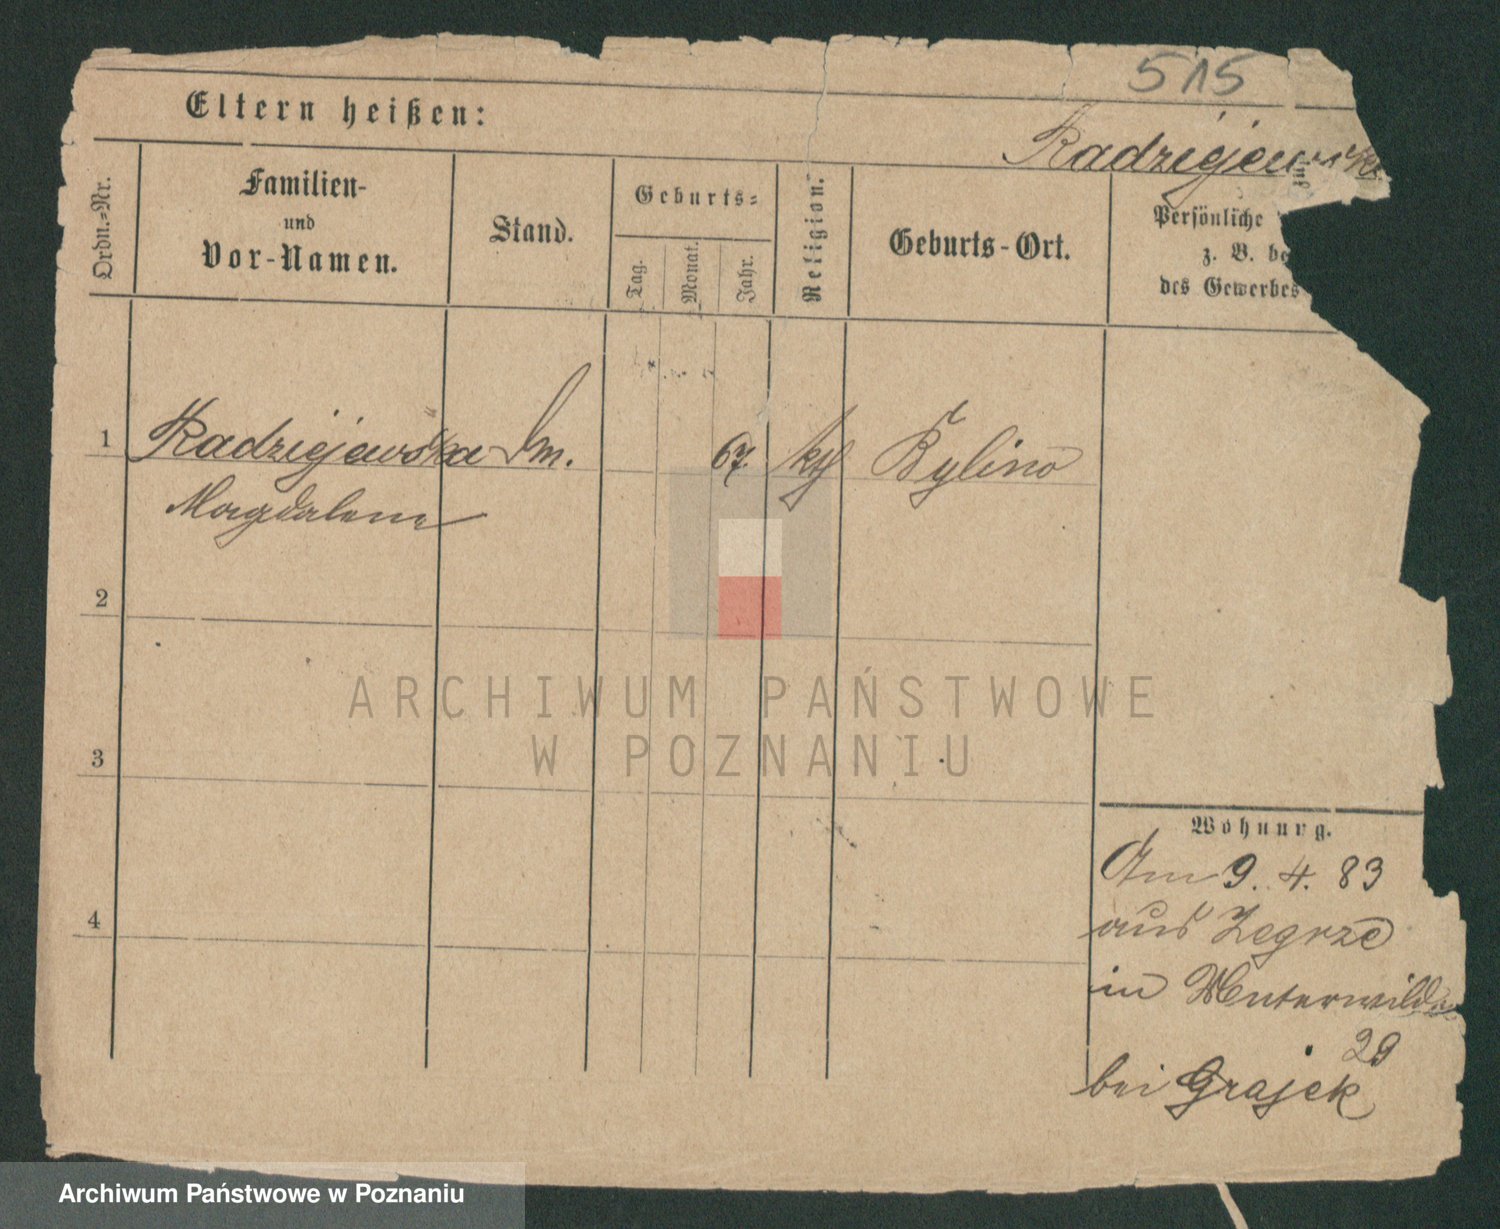 515
Eltern heißen:
Radziejewska
Ordn.-Nr.
Familien-
und
Vor-Namen.
Stand.
Geburts-
Tag.
Monat.
Jahr.
Religion.
Geburts-Ort.
Persönliche
z. B.
des Gewerbes
1 Radziejewska 67. kth Bylino
Magdalena
2
3
4
Wohnung.
Am 9. 4. 83
aus Zegrze
in Unterwilda
29
bei Grajek
ARCHIWUM PAŃSTWOWE
W POZNANIU
Archiwum Państwowe w Poznaniu